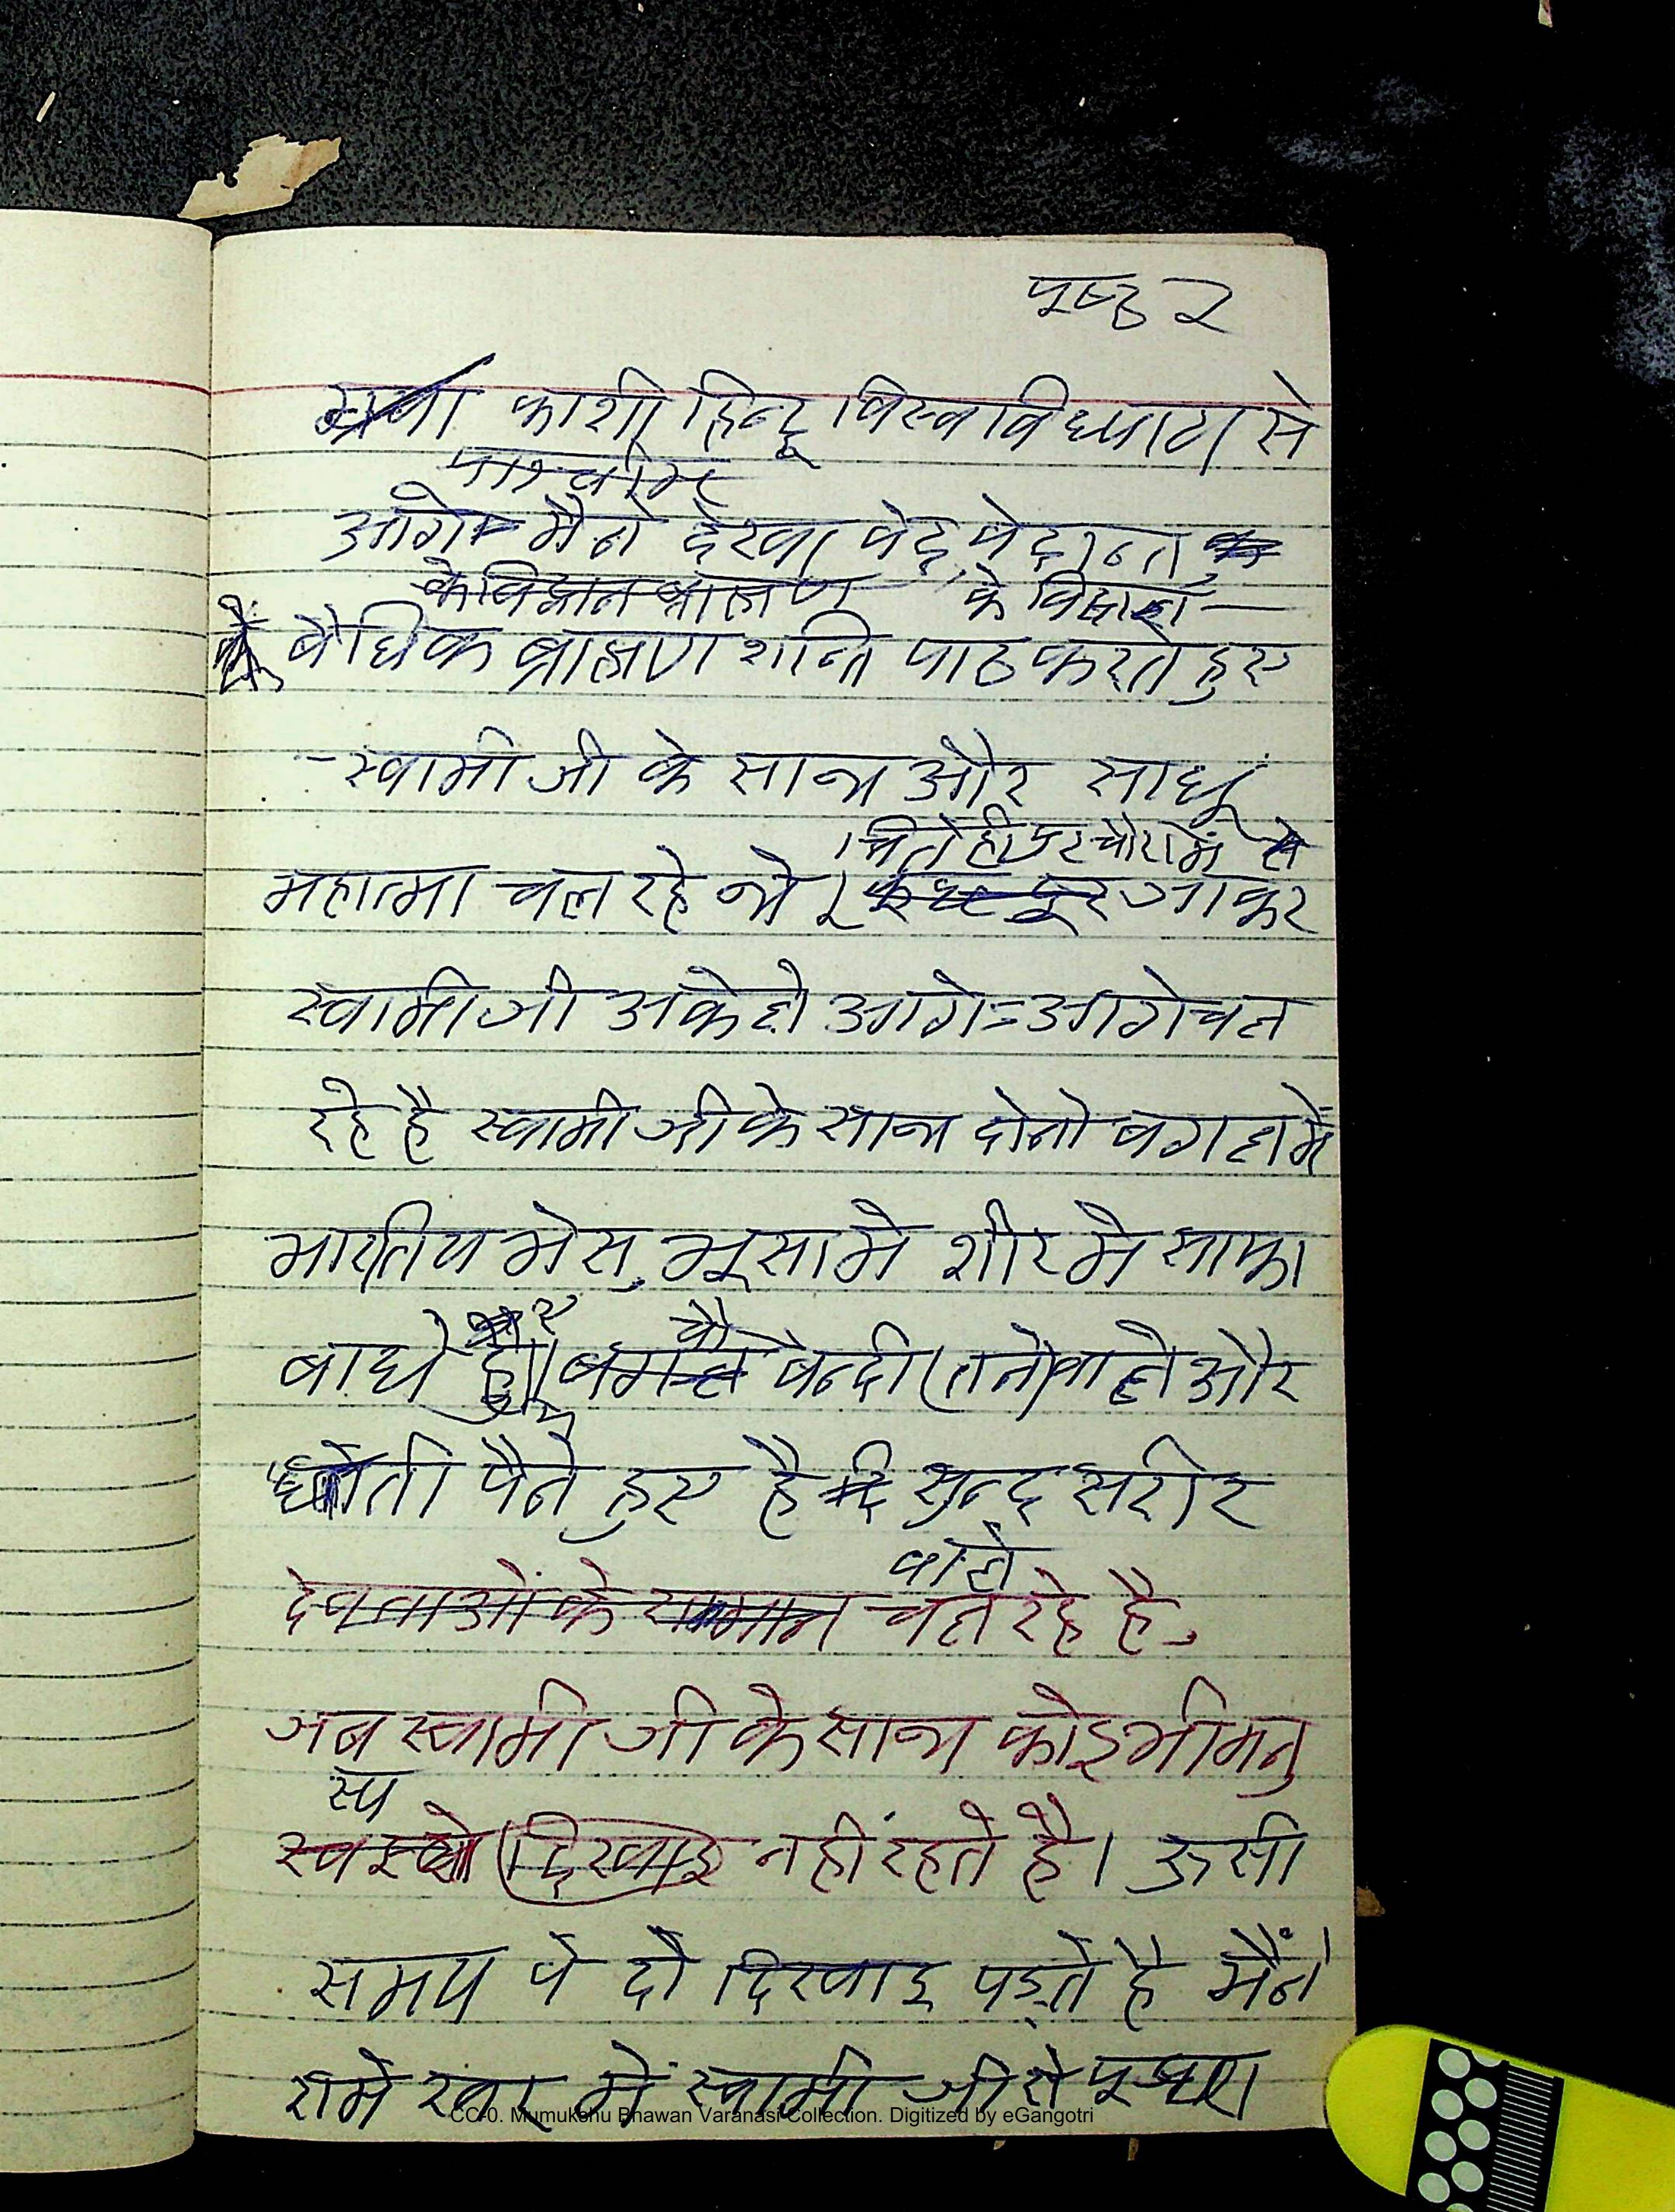 पृष्ठ २
काशी हिन्दू विस्वविध्यालय से
आगे मैने देखा वेद, वेदान्त
के विद्वान ब्राह्मण के विद्वान
वैधिक ब्राह्मण शान्ति पाठ करते हुए
स्वामी जी के साथ और साधू
महात्मा चल रहे थे । जाकर
स्वामी जी अकेले आगे=आगे चल
रहे है स्वामी जी के साथ दोनो बगल में
भारतिय भेस, भूसा मे शीर मे साफा
बाधे हुए बगल बन्दी (तनी) वाले और
धोती पैने हुए है सुन्द सरीर
वाले
देवताओं के समान चल रहे है,
जब स्वामी जी के साथ कोइ भी मनु
स्य
दिखाइ नहीं रहते है। ऊसी
समय वे दो दिखाइ पड़ते है मैंने
स्वामी जी से पूछा
CC-0. Mumukshu Bhawan Varanasi Collection. Digitized by eGangotri